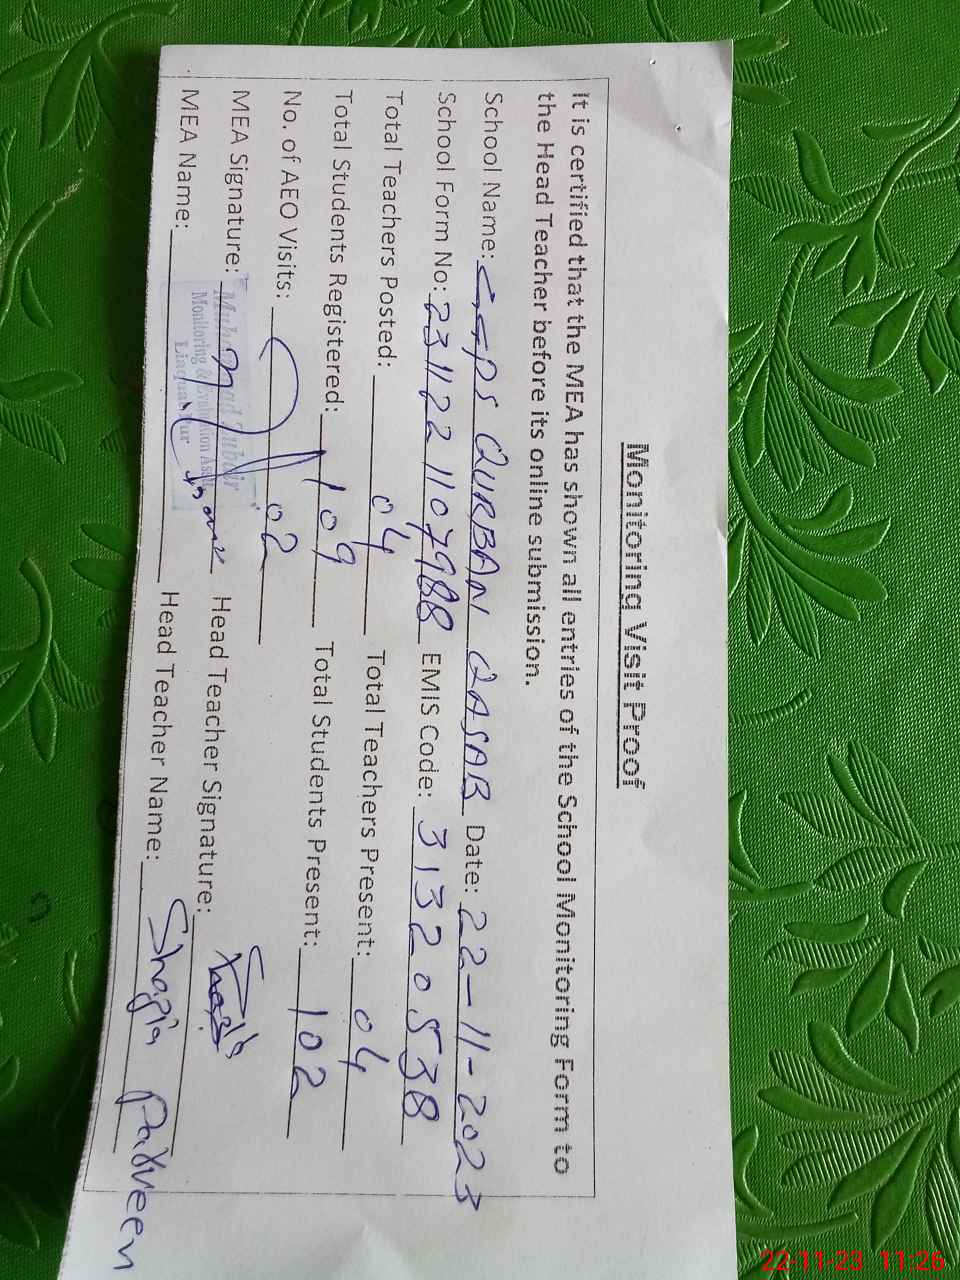 Monitoring Visit Proof
It is certified that the MEA has shown all entries of the School Monitoring Form to
the Head Teacher before its online submission.
School Name: GGPS QURBAN QASAB Date: 22-11-2023
School Form No: 231122 1107988 EMIS Code: 31320538
Total Teachers Posted: 04 Total Teachers Present: 04
Total Students Registered: 109 Total Students Present: 102
No. of AEO Visits: 02
MEA Signature: Head Teacher Signature:
MEA Name: Head Teacher Name: Shazia Parveen
Monitoring & Evaluation
22-11-23 11:26